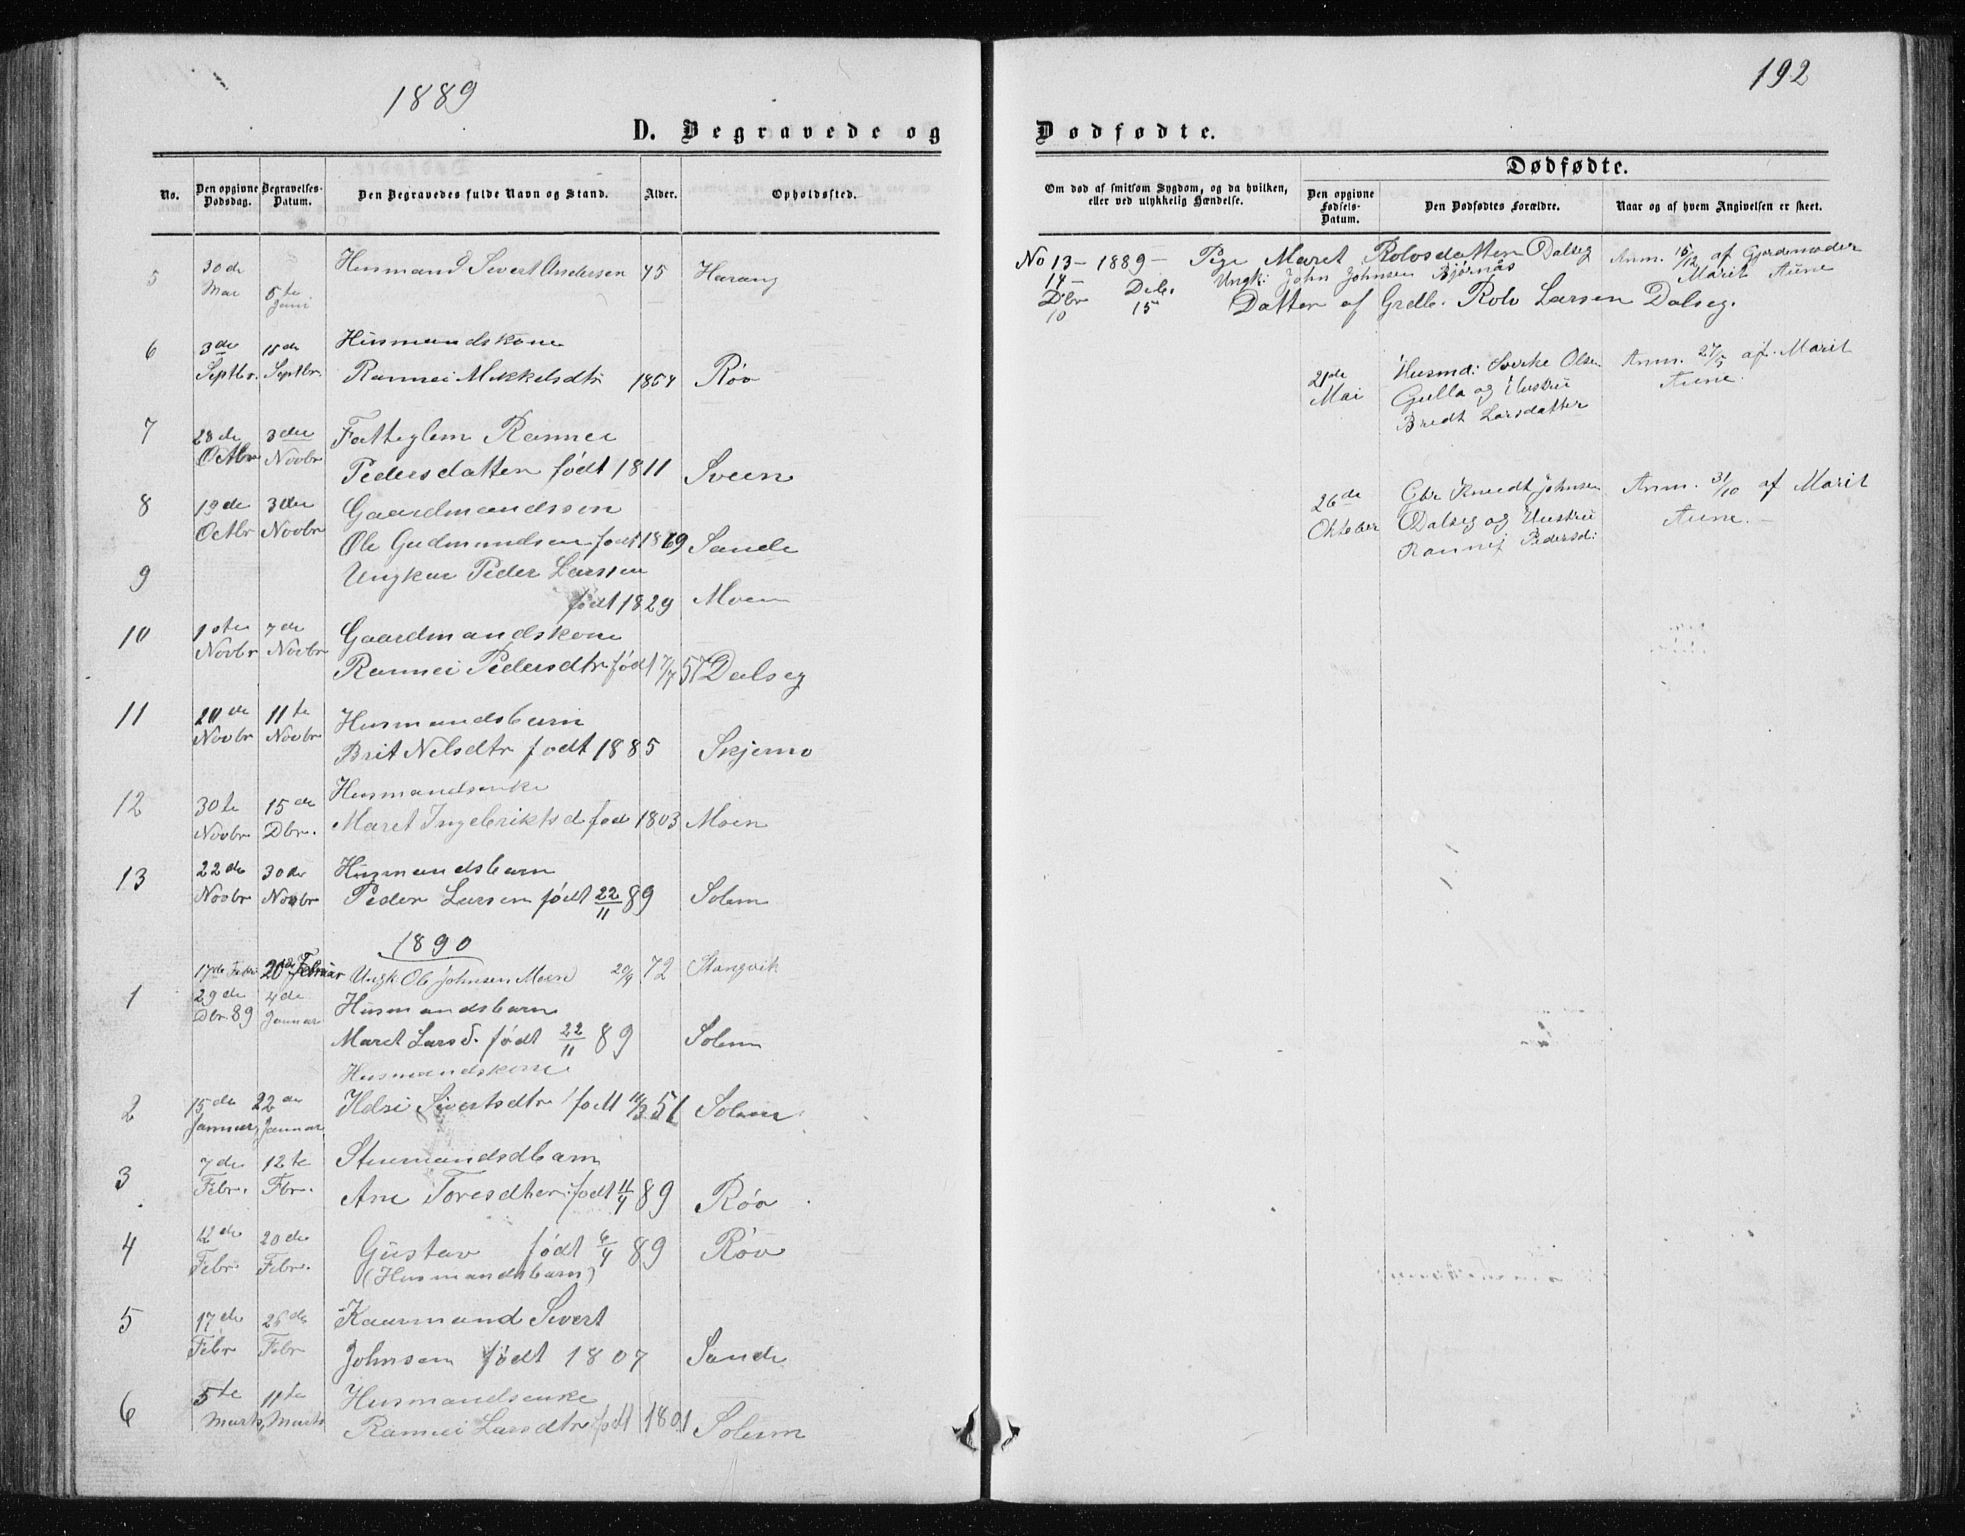 1889
192
D. Begravede og
Dødfødte.
No.
Den opgivne Dødsdag.
Begravelses-Datum.
Den Begravedes fulde Navn og Stand.
Alder.
Opholdssted.
Om død af smitsom Sygdom, og da hvilken, eller ved ulykkelig Hændelse.
Dødfødte.
Den opgivne Fødsels-Datum.
Den Dødfødtes Forældre.
Naar og af hvem Angivelsen er skeet.
5 30de Mai 5te Juni Husmand Sivert Andersen 75 Harang
6 3de Septbr. 15de Septbr. Husmandskone
Rannei Mikkelsdtr Røv
7 28de Octbr 3die Novbr Fatteglem Rannei
Pedersdatter født 1811 Sveen
8 19de Octbr 3die Novbr Gaardmandssøn
Ole Gudmundsen født Sande
9 Ungkar Peder Larssen
født 1829 Moen
10 1ste Novbr 7de Novbr Gaardmandskone
Rannei Pedersdtr født 7/7 57 Dalseg
11 Novbr 11te Novbr Husmandsbarn
Brit Nelsdtr født 1885 Skjermo
12 30te Novbr 15de Dbr. Husmandsenke
Maret Ingebriktsd fød 1803 Moen
13 22de Novbr 30de Novbr Husmandsbarn
Peder Larsen født 22/11 89 Solem
1890
17de Febr 20de Februar Ungk Ole Johnsen Moen 20/9 72 Stangvik
1 29de Dbr. 89 4de Januar Husmandsbarn
Maret Larsd. født 22/11 89 Solem
Husmandskone
2 15de Januar 22de Januar Sivertsdtr født 51 Solem
3 7de Febr. 12te Fbr.
Ane født 11/4 89 Røv
4 12de Febr. 20de Febr. Gustav født 6/4 89 Røv
(Husmandsbarn)
5 17de Febr 26de Febr Kaarmand Sivert
Johnsen født 1807 Sande
6 5te Marts 11te Marts Husmandsenke
Rannei Larsdtr født 1801 Solem
No 13 - 1889 - Pige Maret Rolvsdatter Dalseg Anm. 15/12 af Gjordemoder
14 - Ungk: John Johnsen Bjørnås Marit Aune
Dbr 10 Deb. 15 Datter af Grdb. Rolv Larsen Dalseg.
21de Mai Husmd: Sverke Olsen Anm. 27/5 af Marit
Gulla og Hustru Aune.
Bredt Larsdatter
26de Oktober Gbr Knudt Johnsen Anm. 31/10 af Marit
Dalseg og Hustru Aune.
Rannej Pedersd: